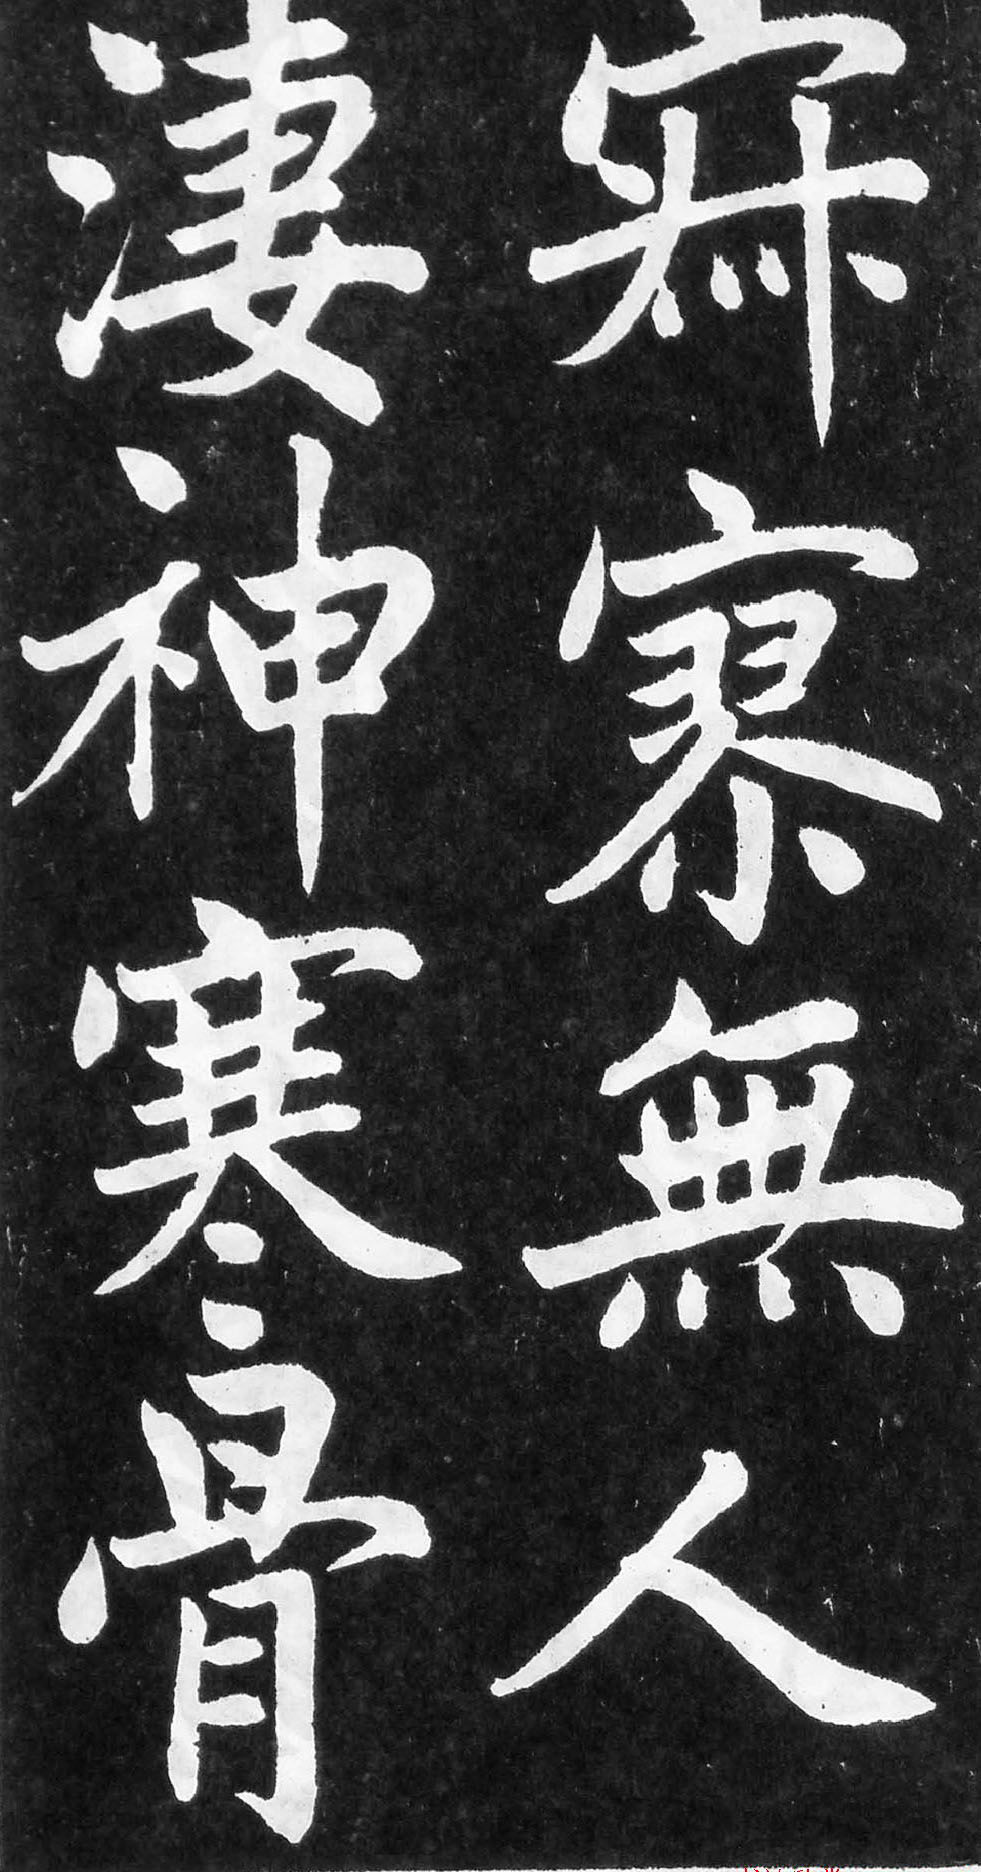 寂寥無人
凄神寒骨